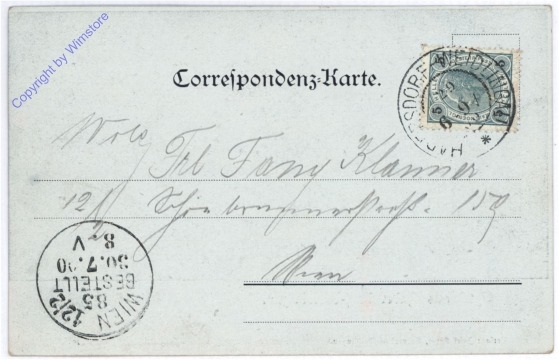 Copyright by Wimstore
Correspondenz-Karte.
HADERSDORF-WEIDLINGAU
Frl Fany Klanner
12/2 Schönbrunnerstraße 159
Wien
WIEN
12/2
85
BESTELLT
30.7.00
8.V